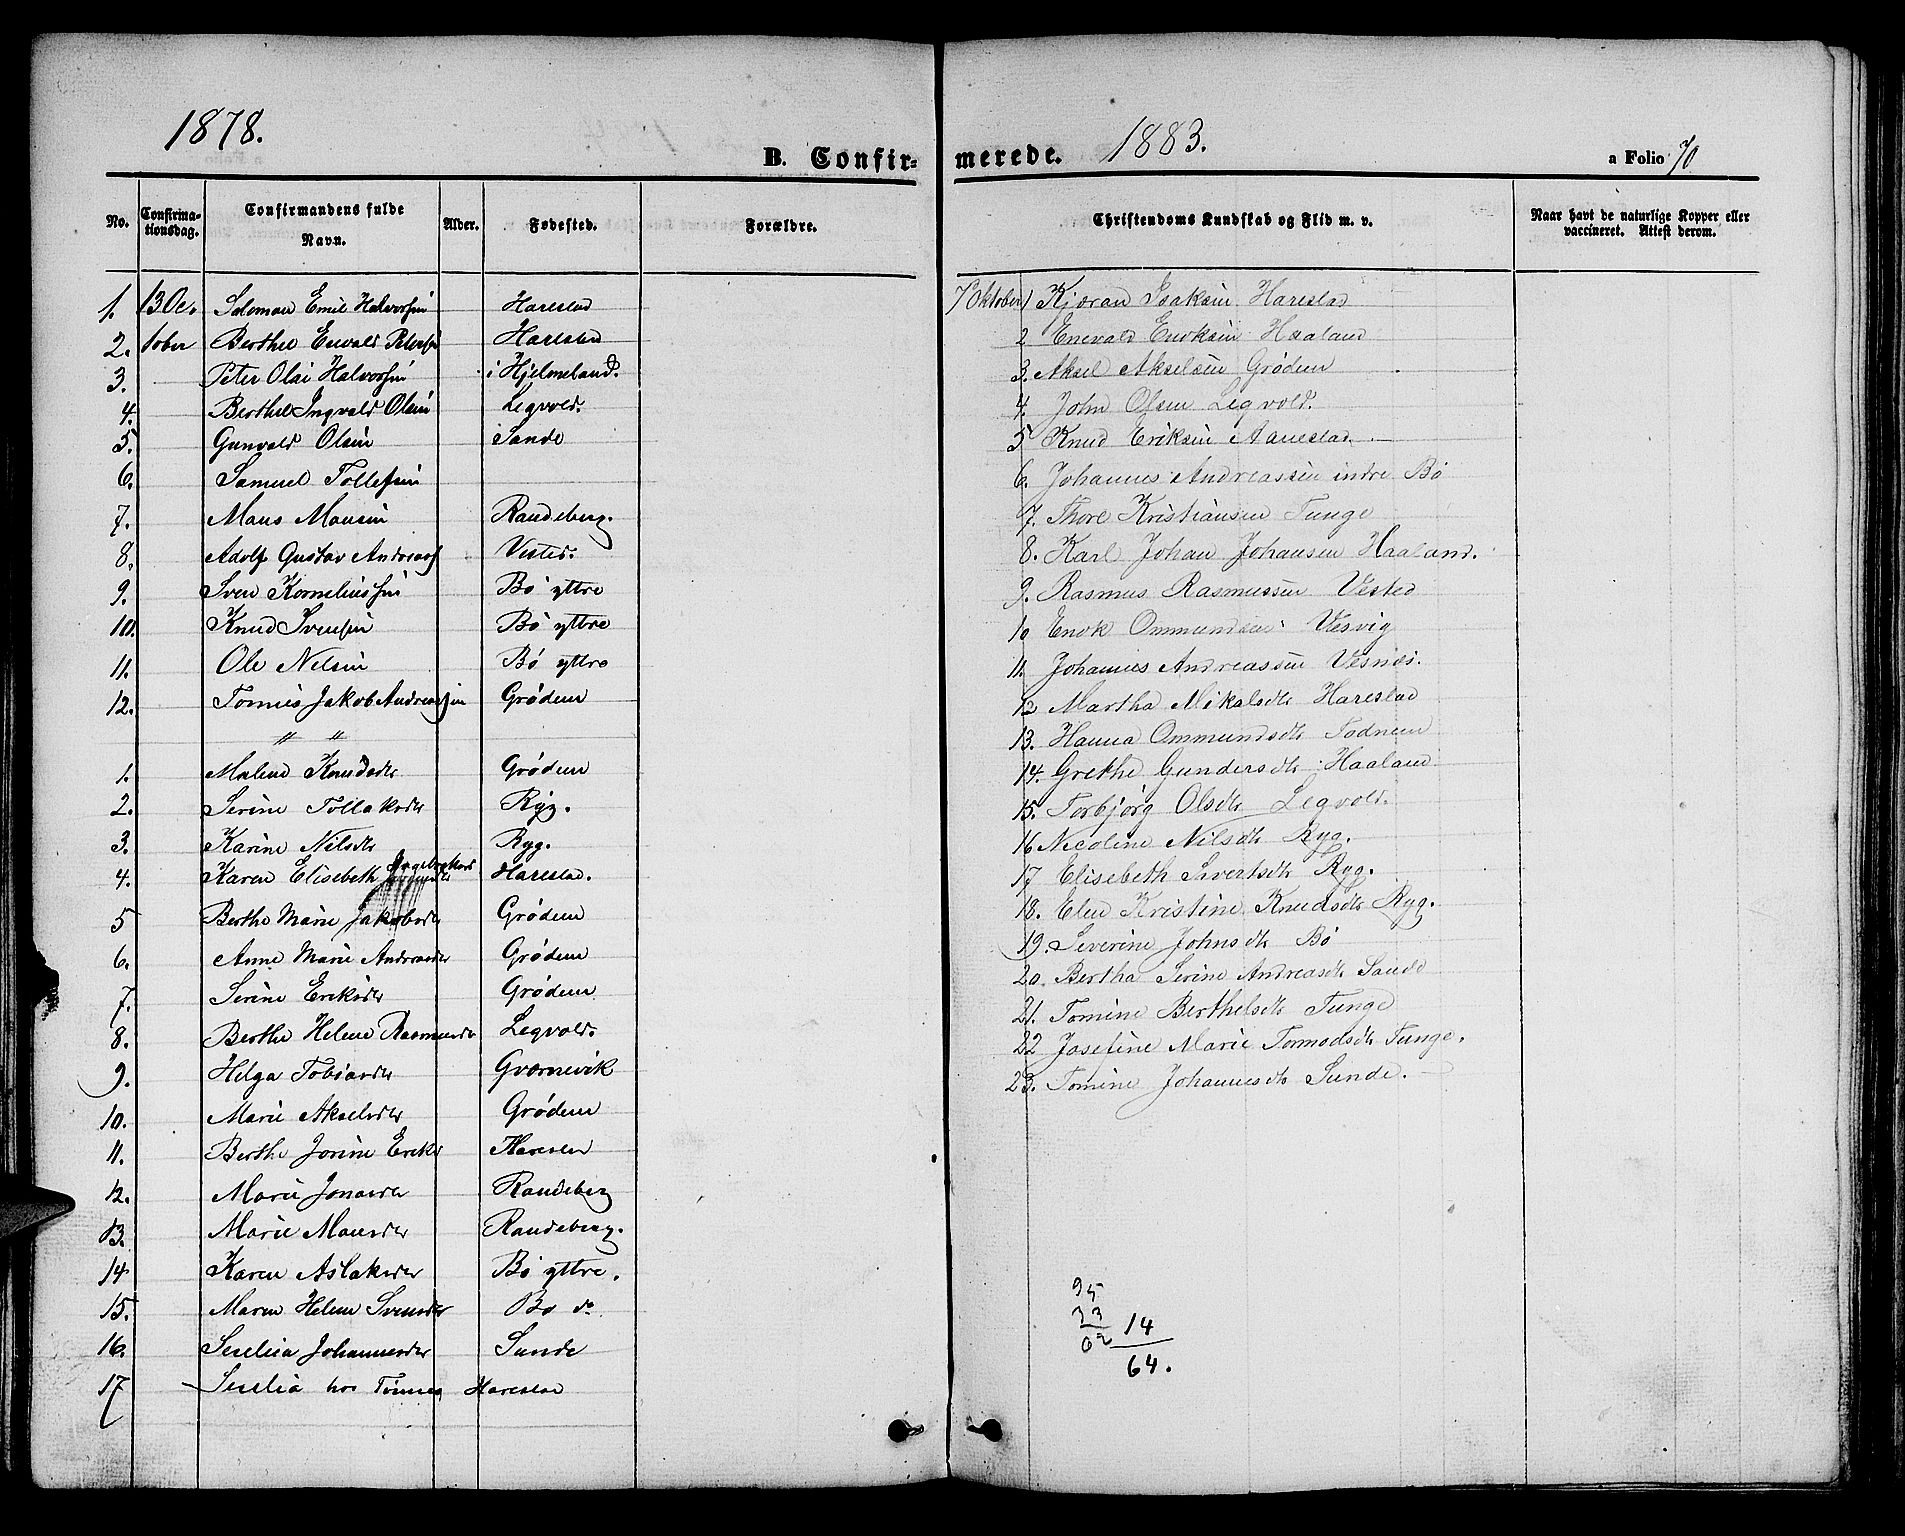 1878.
B. Confir-
No.
Confirma-
tionsdag.
Confirmandens fulde
Navn.
Alder.
Fødested.
Forældre.
1. 13 Oc. Salomon Emil Halvorsen Harestad
2. tober Berthel Enevald Petersen Harestad
3. Peter Olai Halvorsen i Hjelmeland.
4. Berthel Ingvald Olsen Legvold.
5. Gunvald Olsen i Sande
6. Samuel Tollefsen
7. Maus Mausen Randeberg.
8. Adolf Gustav Andreas Vistd.
9. Sven Korneliussen Bø yttre
10. Knud Svensen Bø yttre
11. Ole Nilsen Bø yttre
12. Tønnes Jakob Andreassen Grødem
" "
1. Malene Knudsdtr Grødem
2. Serine Tollaksdtr Ryg.
3. Karine Nilsdtr Ryg.
4. Karen Elisebeth Harestad.
5 Berthe Marie Jakobsdtr Grødem
6. Anne Marie Andreasdtr Grødem
7. Serine Eriksdtr Grødem
8. Berthe Helene Rasmusdtr Legvold.
9. Helga Tobiasdtr Gvarnevik
10. Marie Akselsdtr Grødem
11. Berthe Jorine Eriksd Harestad
12. Marie Jonasdtr Randeberg
13. Marie Mausdtr Randeberg.
14 Karen Aslaksdtr Bø yttre.
15. Maren Helene Svensdtr Bø do
16. Seselia Johannesdtr Sunde
17 Seselia hos Tønnes Harestad
merede. 1883.
a Folio 70
Christendoms Kundskab og Flid m. v.
Naar havt de naturlige Kopper eller
vaccineret. Attest derom.
7 Oktober 1 Kjøran Isaksen Harestad
2 Enevald Eriksen Haaland
3. Aksel Akselsen Grødem
4. John Olsen Legvold.
5 Knud Eriksen Harestad.
6. Johannes Andreassen indre Bø
7. Thore Kristiansen Tunge
8. Karl Johan Johansen Haaland.
9. Rasmus Rasmussen Vested
10 Enok Ommundsen Visvig
11. Johannes Andreassen Visnæs.
12 Martha Mikalsdtr Harestad
13. Hanna Ommundsdtr Todnem
14. Grethe Gundersdtr Haaland
15. Torbjørg Olsdtr Legvold.
16 Nicoline Nilsdtr Ryg.
17 Elisebeth Sivertsdtr Ryg.
18. Elen Kristine Knudsdtr Ryg.
19. Severine Johnsdtr Bø
20. Bertha Serine Andreasdtr Sande
21. Tomine Berthelsdtr Tunge
22 Josefine Marie Tormodsdtr Tunge.
23. Tomine Johannesdtr Sunde.
95
33
02 14
64.